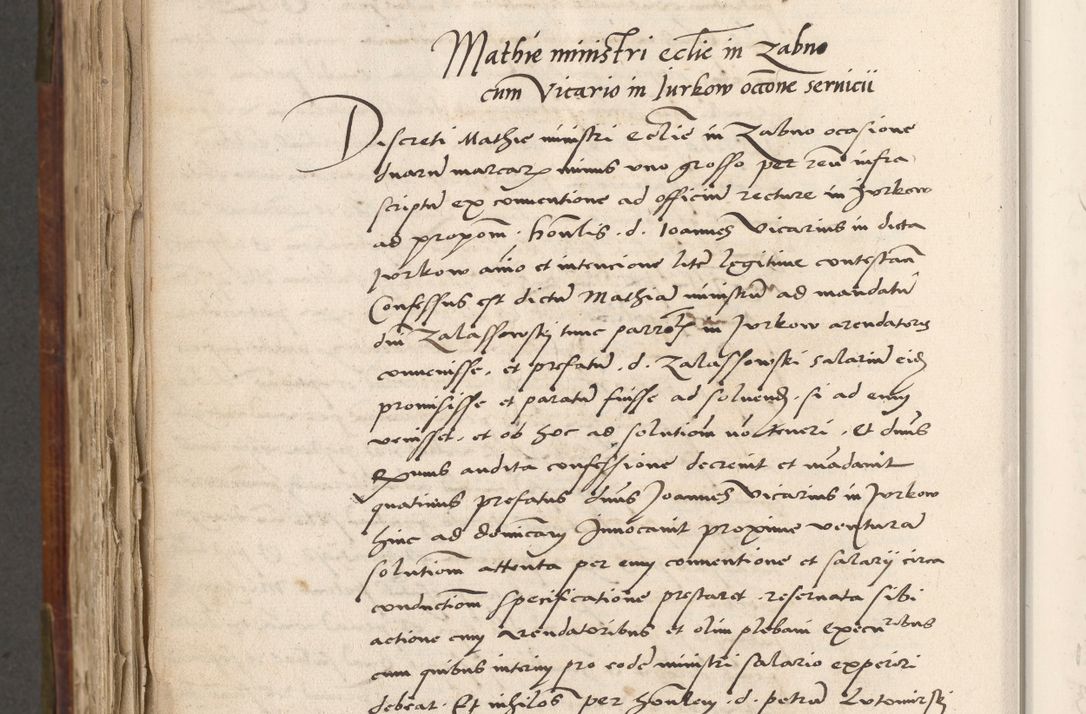 Mathie ministri eclie in Zabno
cum Vicario in Jurkow occone servicii
Discreti Mathie ministri eclie in Zabno ocasione
duaru marcar minus uno grosso per reu infra
scriptu ex conventione ad officiu recture in Jurkow
ad propom . honlis . d . Joannes Vicarius in dicta
Jurkow aio et intencione lite legitime contestan
Confessus est dictu Mathia ministru ad mandatu
dni Zalassowskj tunc parro in Jurkow arendatoris
convenisse . et prefatu . d . Zalassowski salariu eide
promisisse et paratu fuisse ad solvend . si ad eum
venisset . et ob hoc ad solutiom no teneri . Et dnus
audita confessione decrevit et madavit
quatinus prefatus dnus Joannes Vicarius in Jurkow
hinc ad donicam Innocavit proxime ventura
solutiom attenta per eum conventione et salarij circa
conductiom specificatione prestaret . reservata sibi
actione cum arendatoribus et olim plebani executribus
cum quibus interim pro eode ministri salario experiri
debeat . Et nihilos per honlem . d . petru Lutomirskj